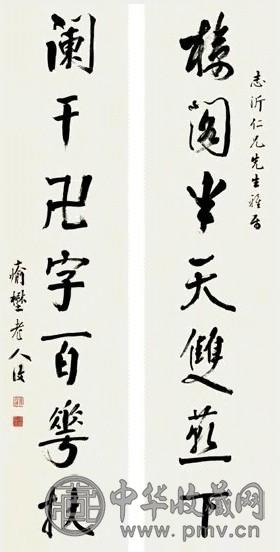 志沂仁兄先生雅屬
樓閣半天雙燕下
闌干卍字百華扶
老人
中华收藏网
www.pmv.cn